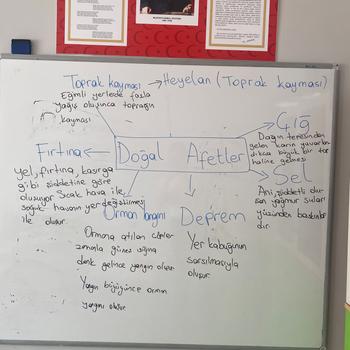 Toprak kayması → Heyelan (Toprak kayması)
Eğimli yerlerde fazla
yağış oluşunca toprağın
kayması
Çığ
Dağın tepesinden
gelen karın yuvarlan
dıkca büyük bir top
haline gelmesi
Fırtına
Doğal Afetler
Yel, fırtına, kasırga
gibi şiddetine göre
oluşuyor. Sıcak hava ile
soğuk havanın yer değiştirmesi
ile oluşur.
Sel
Ani, şiddetli olur
san yağmur suları
yüzünden baskındır
dır
Orman Yangını
Ormana atılan camlar
zamanla güneş ışığına
denk gelince yangın oluşur
Yangın büyüyünce orman
yangını oluşur
Deprem
Yer kabuğunun
sarsılmasıyla
oluşur.